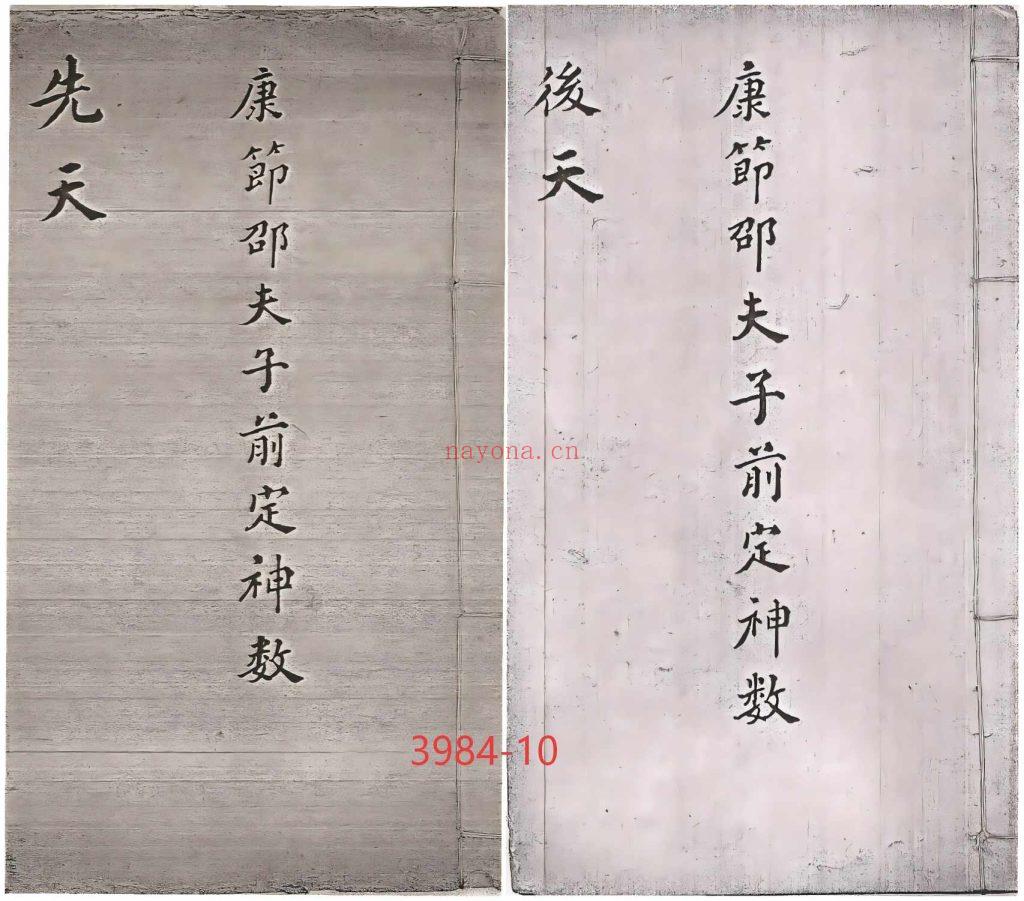 康節邵夫子前定神数
先天
康節邵夫子前定神数
後天
nayona.cn
3984-10